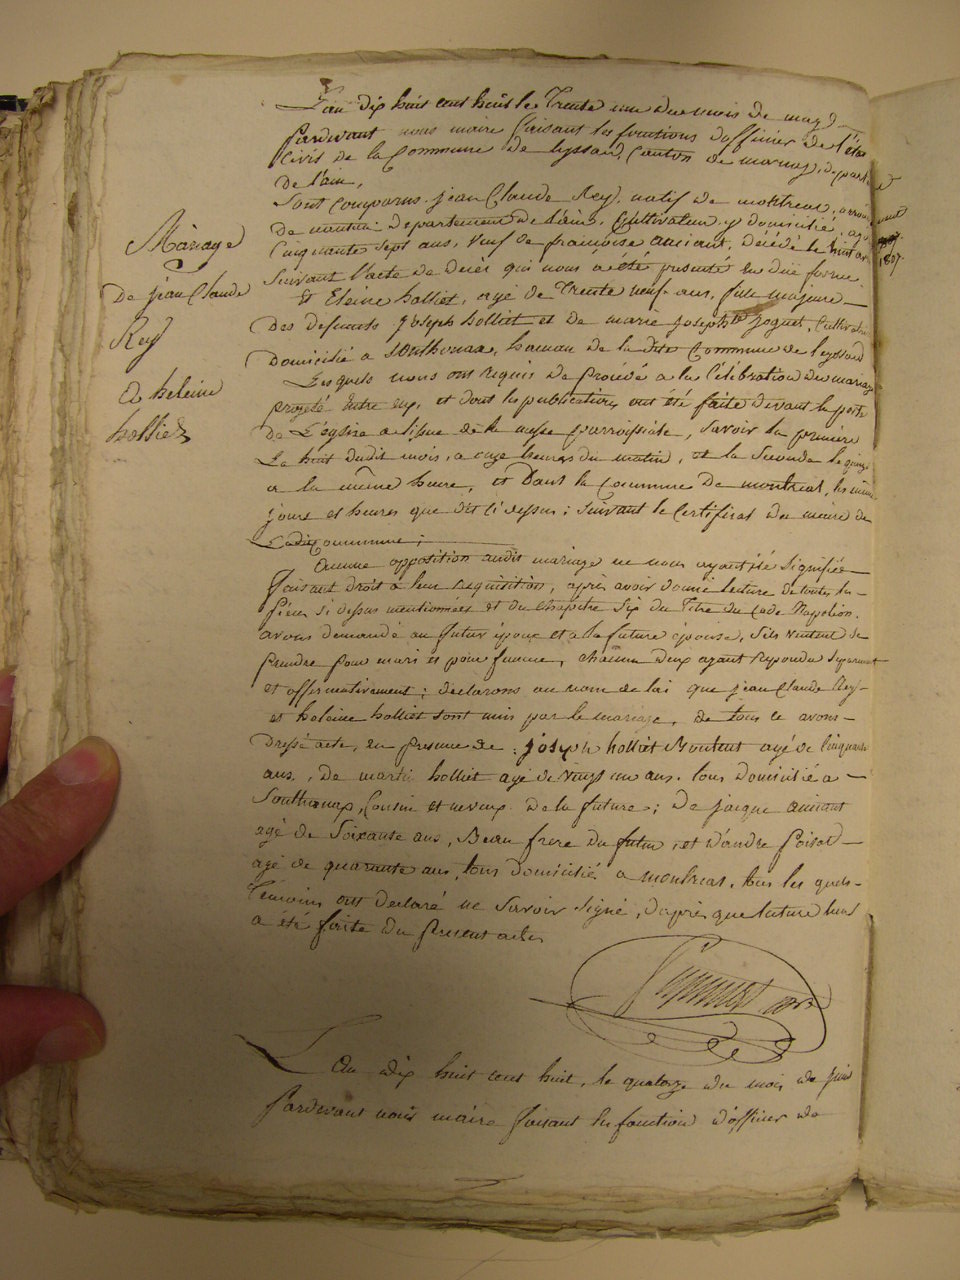 Mariage
De jean Claude
Rey
& heleine
hollied
L'an dix huit cent huit le Trente un du mois de may
Pardevant nous maire faisant les fonctions d'officier de l'état
Civil de la Commune de leyssard, Canton de
De l'ain,
Sont comparus jean Claude Rey, natif de montreal,
De nantua departement de l'ain, Cultivateur y domicilié, agé
Cinquante sept ans, veuf de françoise amiant, décédé le huit
1807
Suivant l'acte de decès qui nous a été presenté en due forme
Et Eleine holliet, agé de Trente neuf ans, fille majeure
Des defunts joseph holliet et de marie josephte joguet, Cultivateur
Domicilié a Sonthonax, hameau de la dite Commune de leyssard
Lesquels nous ont requis de procedé a la Célébration du mariage
projeté Entre eux, et dont les publications ont été faite devant la porte
De L'église a l'issue de la messe parroissiale, Savoir la premiere
Le huit dudit mois, a onze heures du matin, et la Seconde le quinze
a la même heure, et Dans la Commune de montreal, les même
jours et heures que dit Ci dessus; suivant le Certificat du maire de
La dite Commune;
Aucune opposition audit mariage ne nous ayant été Signifiée
Faisant droit a leur requisition, après avoir donné lecture de toutes les
Pièces Ci dessus mentionnées et du chapitre Six du Titre du Code Napoléon.
avons demandé au futur époux et a la future épouse, S'ils veulent se
prendre pour mari et pour femme, chacun deux ayant Repondu Séparement
et affirmativement; declarons au nom de la loi que jean Claude Rey
et heleine holliet sont unis par le mariage, de tous ce avons
Dressé acte, en presence de joseph holliet agé de Cinquante
ans, De martin holliet agé de vingt un ans, tous Domicilié a
Sonthonax, Cousin et neveux De la future; De jacque amiant
agé de Soixante ans, Beau frere du futur, et d'andre Poisat
agé de quarante ans, tous domicilié a montreal, tous les quels
Témoins ont declaré ne Savoir Signé, d'après que lecture leurs
a été faite du Present acte
L'an dix huit cent huit, le quatorze du mois de juin
Pardevant nous maire faisant les fonction d'officier de